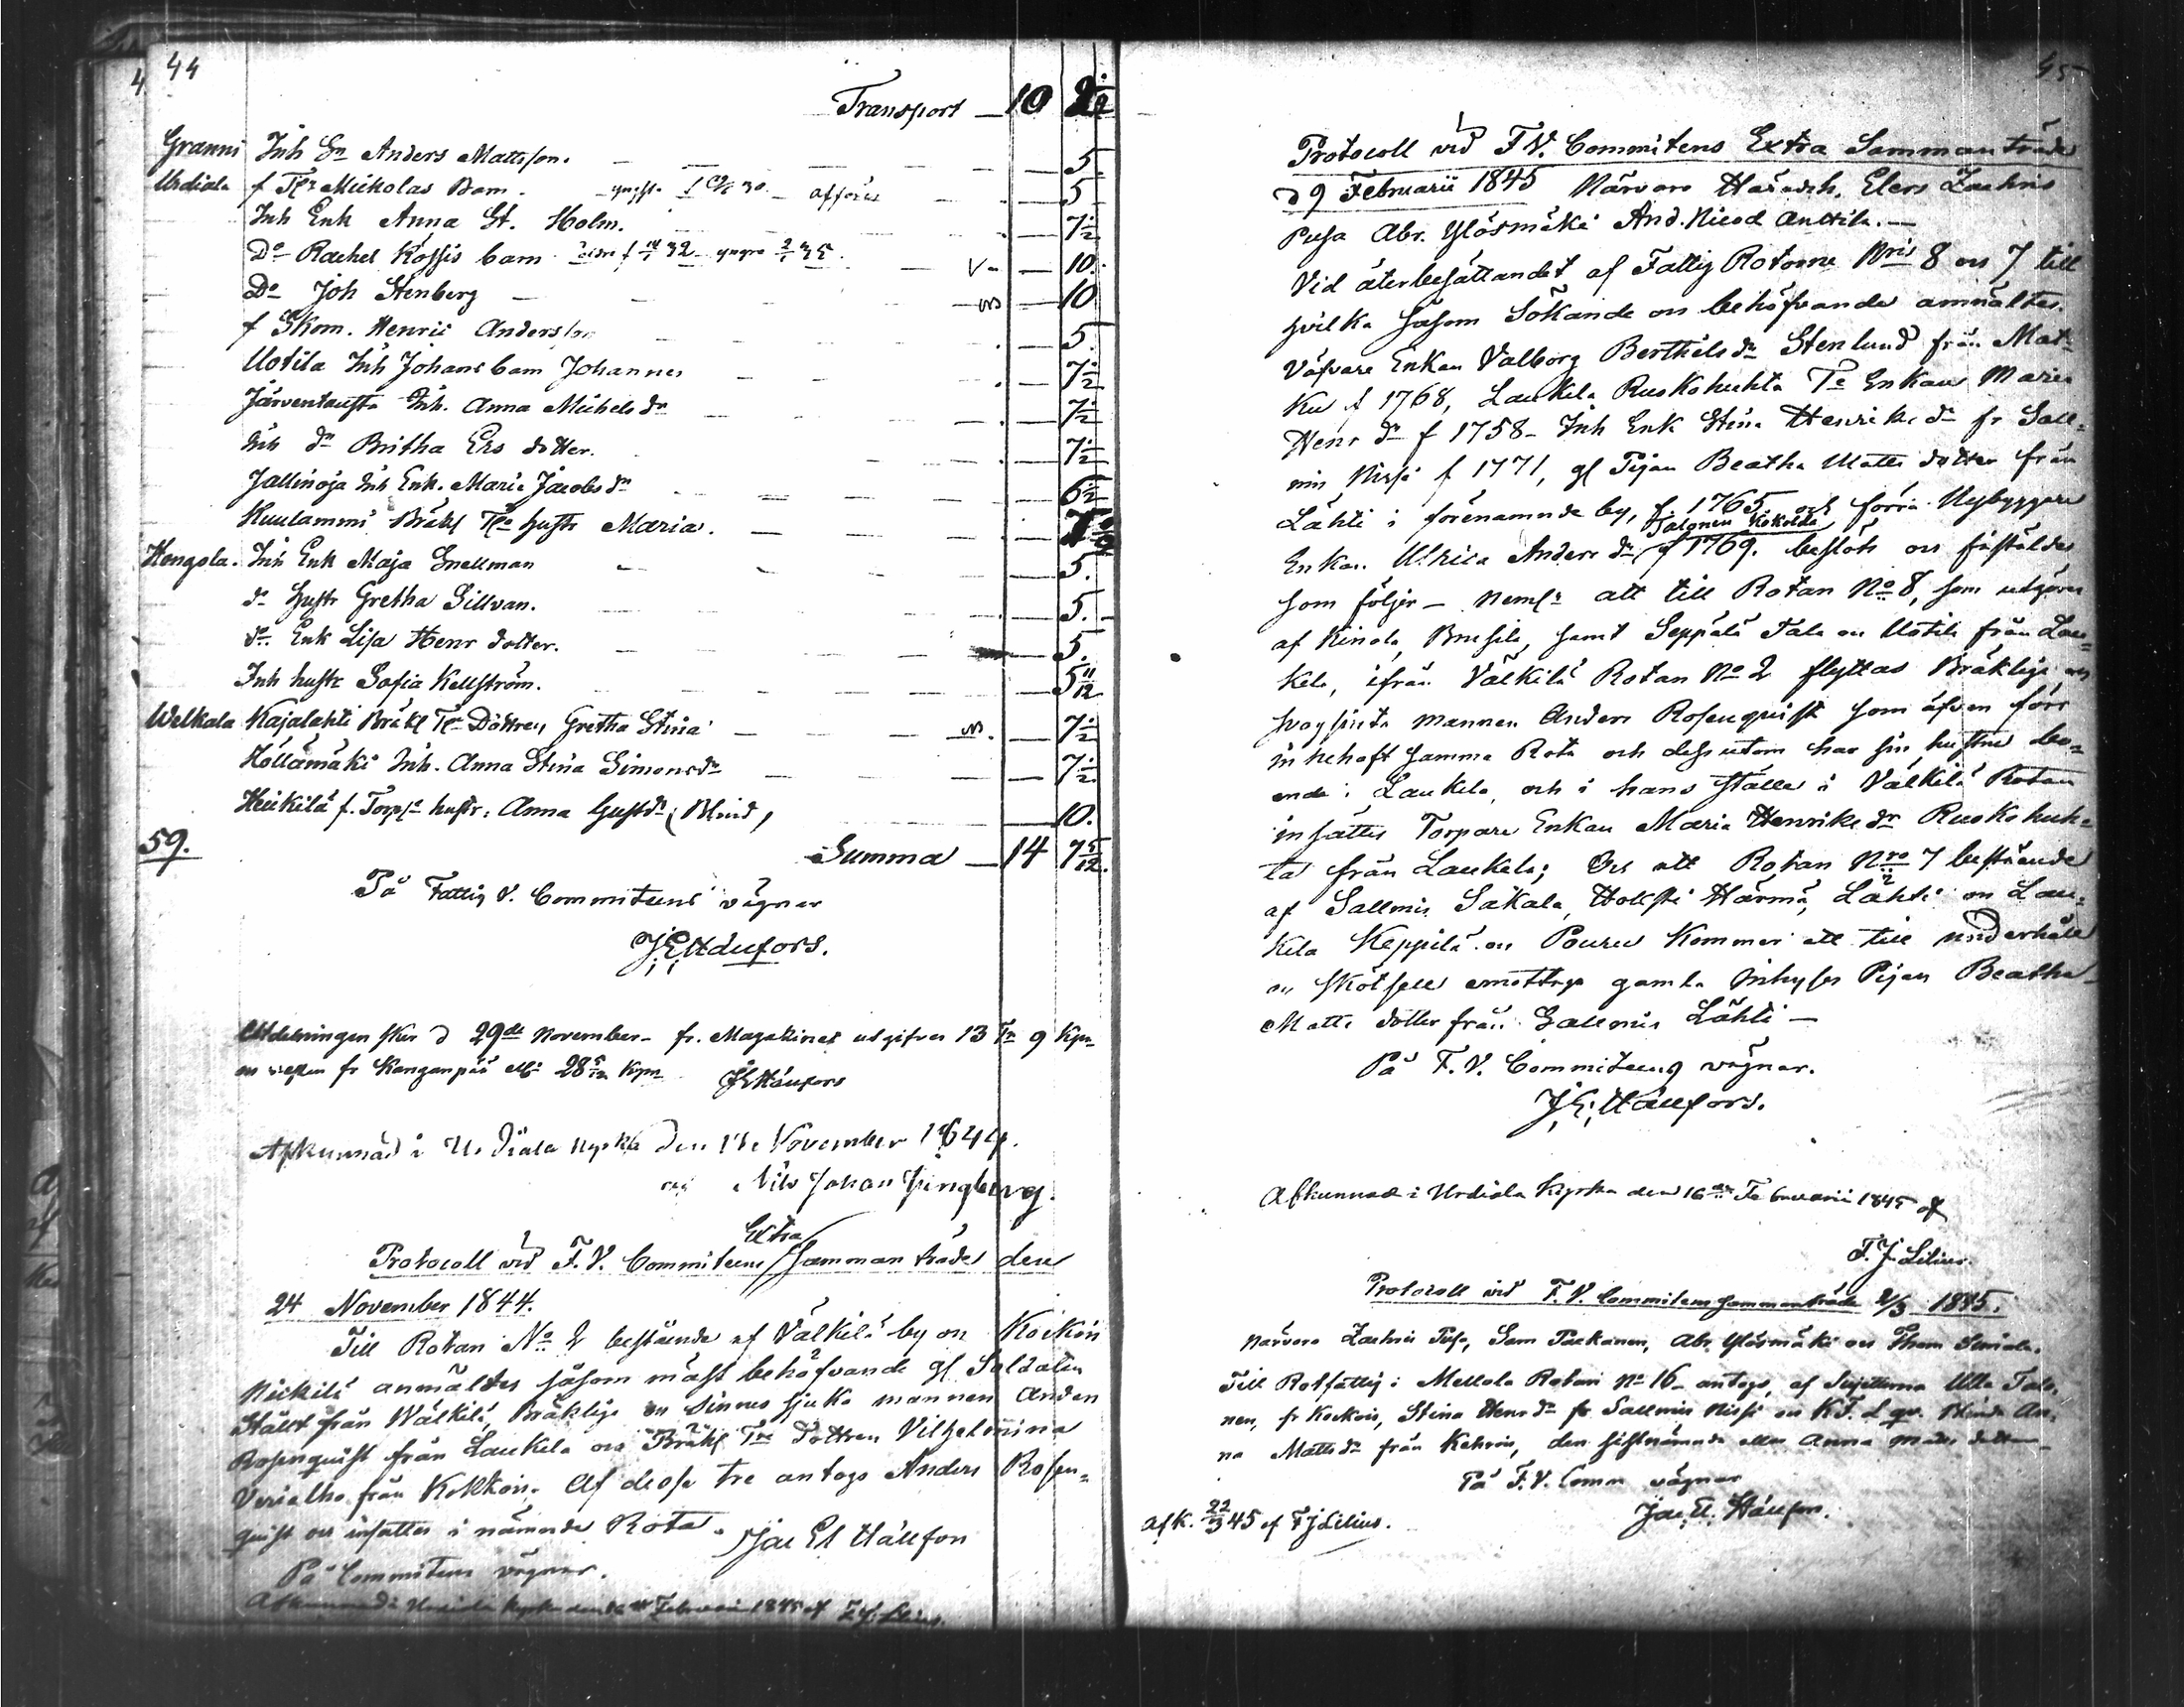 44
Transport 10
Granni Inh Sn Anders Mattsson. 5
Urdiala f Tpr Mickolas Barn. yngsta afföres 5
Inh Enk Anna St. Holm. 7½
Do Rachel Kossis barn 10.
Do Joh Stenberg 10
f Skom. Henric Andersson 5.
Uotila Inh Johans barn Johannes 7½
Järventausta Inh. Anna Michels dr 7½
Inh dr Britha Ers dotter. 7½
Jallinoja Inh Enk. Maria Jacobs dr 6½
Kuulammi Bräkl Tpr hustr Maria.
Hongola. Inh Enk Maja Snellman 5.
do hustr Gretha Sillvan. 5.
do. Enk Lisa Henr dotter. 5.
Inh hustr Sofia Kellström. 5 11/12
Welkala Kajalahti Bräkl Tpr Dottren Gretha Stina 7½
Höllämäki Inh. Anna Stina Simonsdr 7½
Heikilä f. Torpre hustr. Anna Gustdr (Blind) 10.
59.
Summa 14 7 5/12.
På Fattig V. Commiteens vägnar
J. E. Hällfors.
Utdelningen sker d 29de November fr. Magasinet utgifves 13 Tr 9 Kpr
fr Kanganpää 28 Kpr J E Hällfors
Afkunnad i Urdiala Kyrka den November 1844.
Nils Johan
Extra
Protocoll vid F. V. Commiteens Sammanträde den
24 November 1844.
Till Rotan No 2 bestående af Välkilä by oc Koikoin
Mickilä anmältes såsom mäst behöfvande gl Soldaten
Stålt från Wälkilä, Bräklige oc sinnes sjuka mannen Anders
Rosenquist från Laukela oc Bräkl Tre Dottren Vilhelmina
Verialho från Kokkoin. Af desse tre antogs Anders Rosen-
quist oc insattes i nämnde Rota.
Jac El Hällfors
På Commiteens vägnar.
Afkunnad i Urdiala Kyrka den 16de Februari 1845 af F J Lilius.
45
Protocoll vid F. V. Commiteens Extra Sammanträde
d 9 Februarii 1845 Närvaro Häradsh. Elers Zachris
Pusa Abr. Ylösmäki And. Anttila.
Vid återbesättandet af Fattig Rotorne Nris 8 oc 7 till
hvilka såsom Sökande oc behöfvande anmältes.
Väfvare Enkan Valborg Berthels dr Stenlund från Mat-
ku f 1768, Laukela Ruokohuhta Tp Enkan Maria
Henr dr f 1758 - Inh Enk Stina Henriks dr fr Sall-
min Nissi f 1771, gl Pigan Beatha Matts dotter från
Lähti i förenämnde by, f. 1765. och förra Nybyggare
Enkan Ulrica Anders dr f 1769. beslöts oc faststäldes
som följer - neml: att till Rotan No 8, som utgöres
af Kinola, Brusila, samt Seppälä Tala oc Uotila från Lau-
kela, ifrån Välkilä Rotan No 2 flyttas Bräklige oc
svagsinta mannen Anders Rosenquist som äfven förr
innehaft samma Rota och dessutom har sin hustru bo-
ende i Laukela, och i hans ställe i Välkilä Rotan
insättes Torpare Enkan Maria Henriks dr Ruokohuh-
ta från Laukela; Oc att Rotan Nro 7 bestående
af Sallmis Sakala, Hoksti Härmä, Lähti oc Lau-
kela Keppilä oc Pouru Kommer att till underhåll
oc skötsell emottaga gamla Inhyses Pigan Beatha
Matts dotter från Sallmis Lähti -
På F. V. Commiteens vägnar.
J. E. Hällfors.
Afkunnad i Urdiala Kyrka den 16de Februarii 1845 af
F. J. Lilius.
Protocoll vid F. V. Commiteens sammanträde 2/3 1845.
Närvaro Zachris Pusa, Sam Paskanen, Abr. Ylösmäki oc Thom
Till Rotfattig i Mellola Rotan No 16 antogs, af Ulla Talo-
nen, fr Kockois, Stina Henr dr fr Sallmis Nissi oc An-
na Matts dr från Kehrois, den sistnämnde eller Anna Matts dotter
På F. V. Comm vägnar
Jac. E. Hällfors.
Afk. 22/3 45 af F J Lilius.